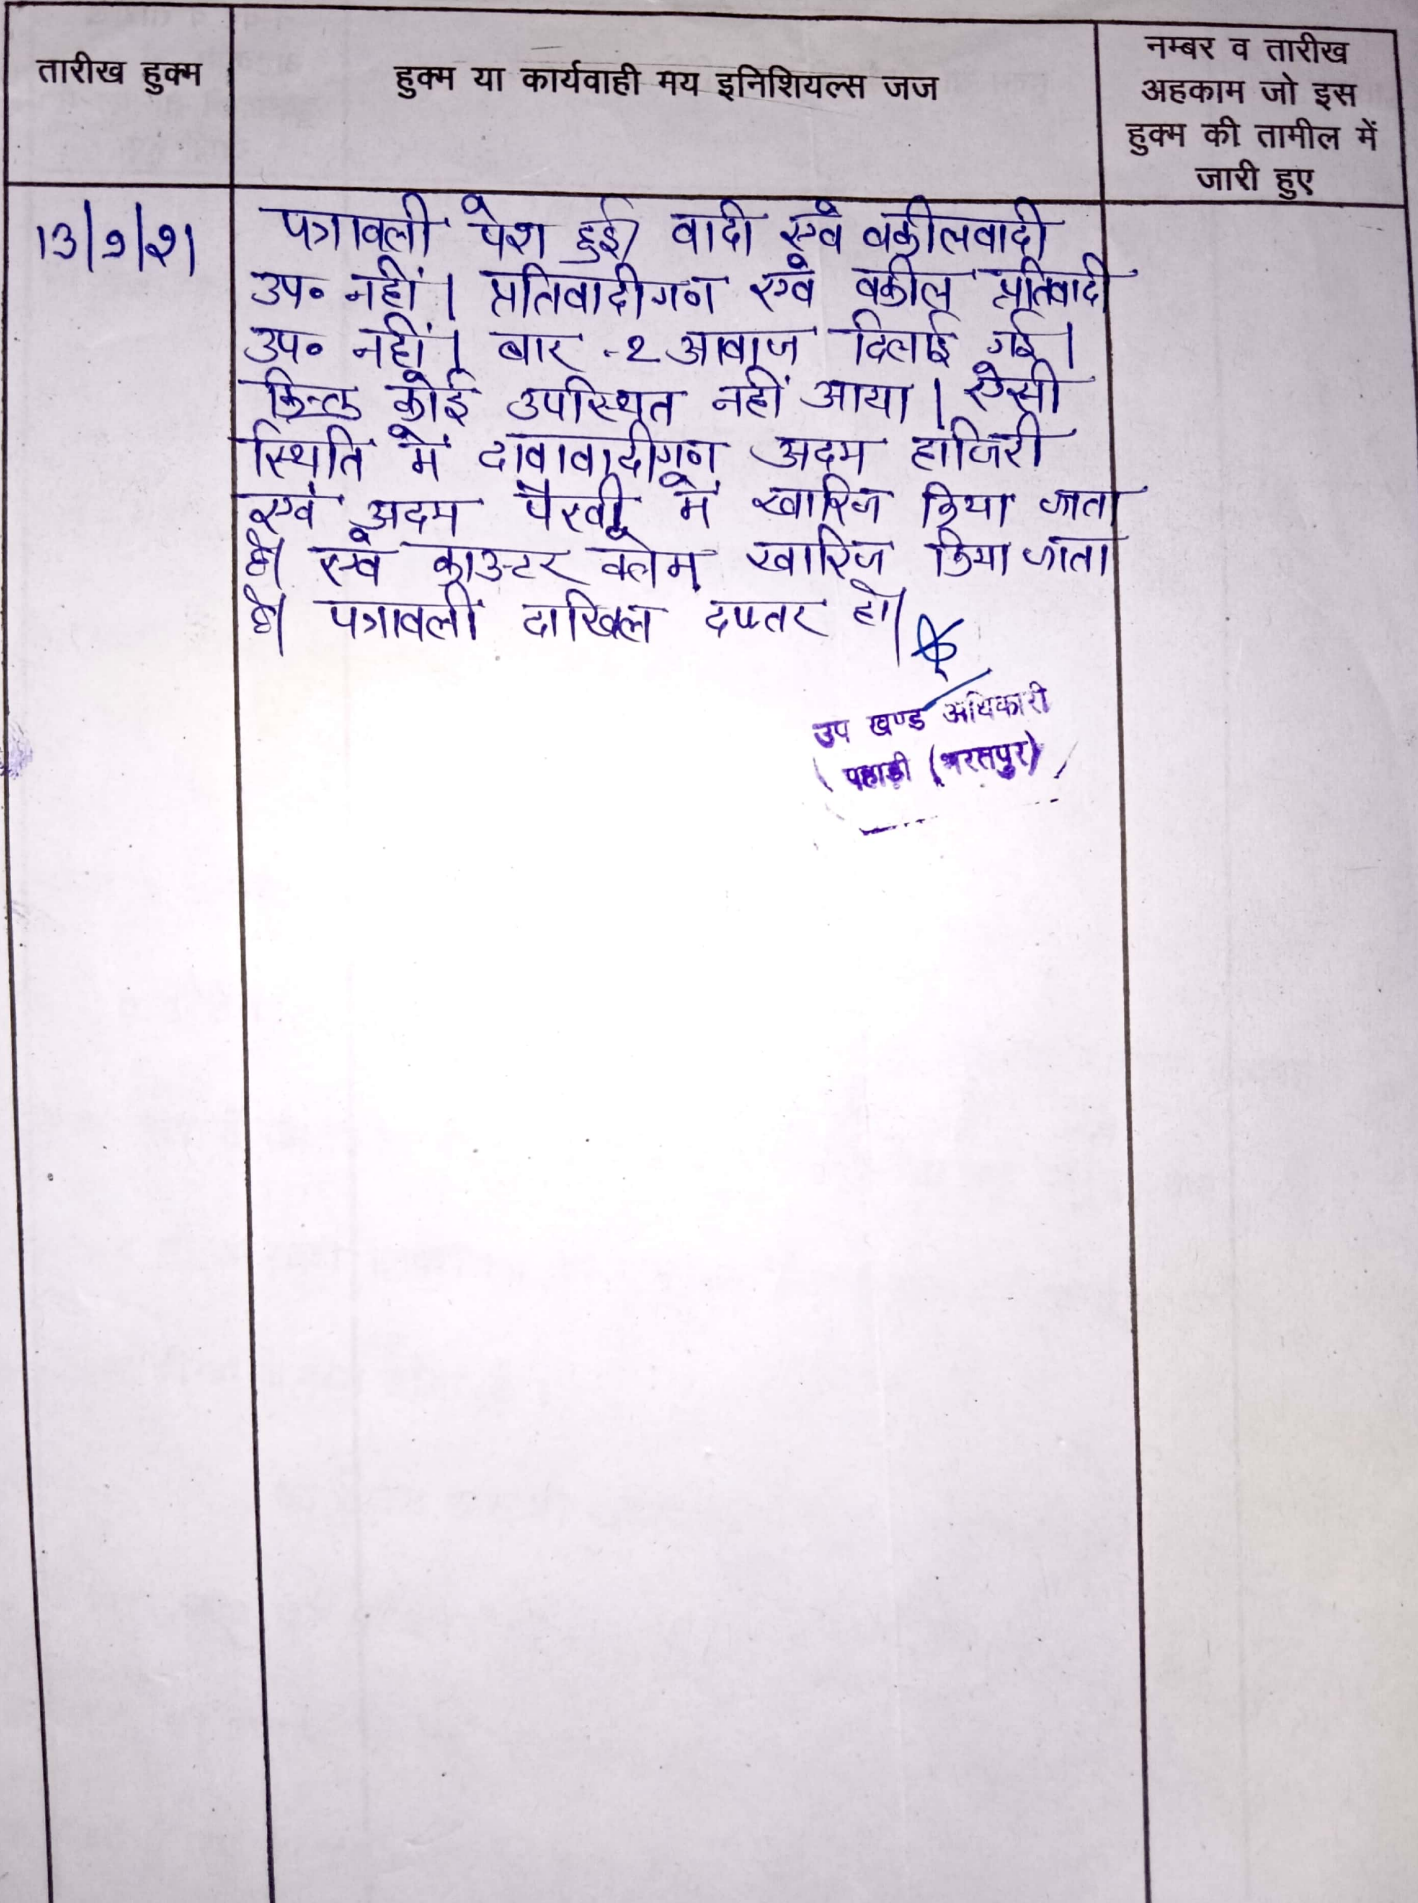 तारीख हुक्म
हुक्म या कार्यवाही मय इनिशियल्स जज
नम्बर व तारीख
अहकाम जो इस
हुक्म की तामील में
जारी हुए
13/9/21
पत्रावली पेश हुई। वादी एवं वकीलवादी
उप० नहीं। प्रतिवादीगण एवं वकील प्रतिवादी
उप० नहीं। बार -2 आवाज दिलाई गई।
किन्तु कोई उपस्थित नहीं आया। ऐसी
स्थिति में दावावादीगण अदम हाजिरी
एवं अदम पैरवी में खारिज किया जाता
है। एवं काउन्टर क्लेम खारिज किया जाता
है। पत्रावली दाखिल दफ्तर हो।
उप खण्ड अधिकारी
पहाडी (भरतपुर)